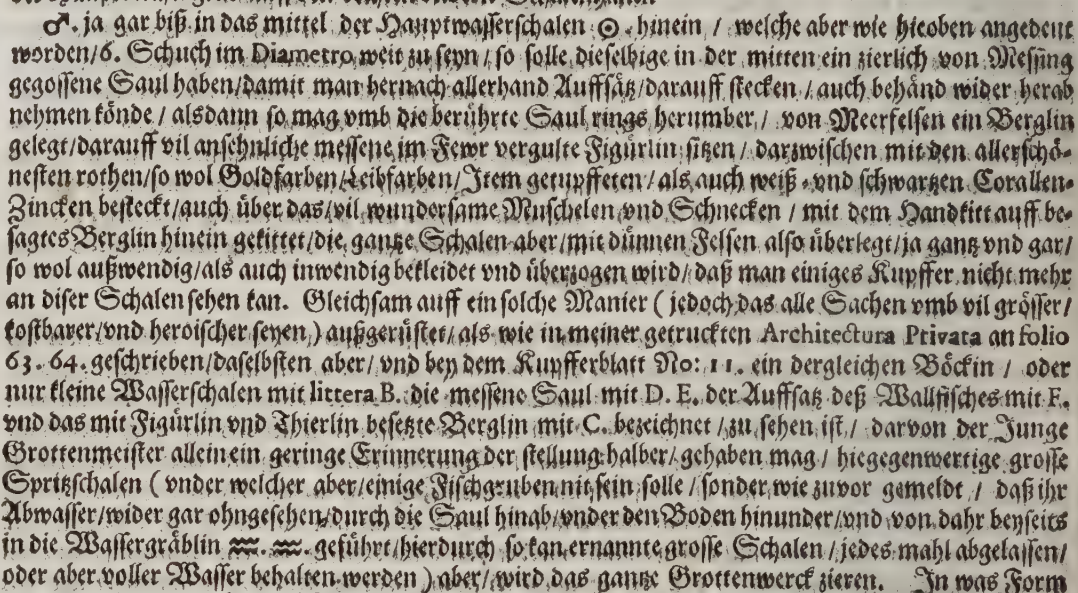 ♂. ja gar biß in das mittel der Hauptwasserschalen ☉. hinein / welche aber wie hieoben angedeut
worden/6. Schuch im Diametro weit zu seyn / so solle dieselbige in der mitten ein zierlich von Messing
gegossene Saul haben/damit man hernach allerhand Auffsäß/darauff stecken / auch behänd wider herab
nehmen könde / alsdann so mag vmb die berührte Saul rings herumber / von Meerfelsen ein Berglin
gelegt/darauff vil ansehnliche messene im Fewr vergulte Figürlin sitzen / darzwischen mit den allerschö-
nesten rothen/so wol Goldfarben/Leibfarben/Item getupffeten / als auch weiß- vnd schwartzen Corallen-
Zincken besteckt/auch über das/vil wundersame Muschelen vnd Schnecken / mit dem Handkitt auff be-
sagtes Berglin hinein gekittet/die gantze Schalen aber/mit dünnen Felsen also überlegt/ja gantz vnd gar/
so wol außwendig/als auch inwendig bekleidet vnd überzogen wird/daß man einiges Kupffer nicht mehr
an diser Schalen sehen kan. Gleichsam auff ein solche Manier ( jedoch das alle Sachen vmb vil grösser/
kostbarer/vnd heroischer seyen ) außgerüstet/als wie in meiner getruckten Architectura Privata an folio
63. 64. geschrieben/daselbsten aber/ vnd bey dem Kupfferblatt No: 11. ein dergleichen Böckin / oder
nur kleine Wasserschalen mit littera B. die messene Saul mit D. E. der Auffsatz deß Wallfisches mit F.
vnd das mit Figürlin vnd Thierlin besetzte Berglin mit C. bezeichnet / zu sehen ist / darvon der Junge
Grottenmeister allein ein geringe Erinnerung der stellung halber/gehaben mag / hiegegenwertige grosse
Spritzschalen ( vnder welcher aber/einige Fischgruben nit sein solle / sonder wie zuvor gemeldt / daß ihr
Abwasser/wider gar ohngesehen/durch die Saul hinab/vnder den Boden hinunder/vnd von dahr beyseits
in die Wassergräblin ♒. ♒. geführt/hierdurch so kan ernannte grosse Schalen / jedes mahl abgelassen/
oder aber voller Wasser behalten werden ) aber/wird das gantze Grottenwerck zieren. In was Form